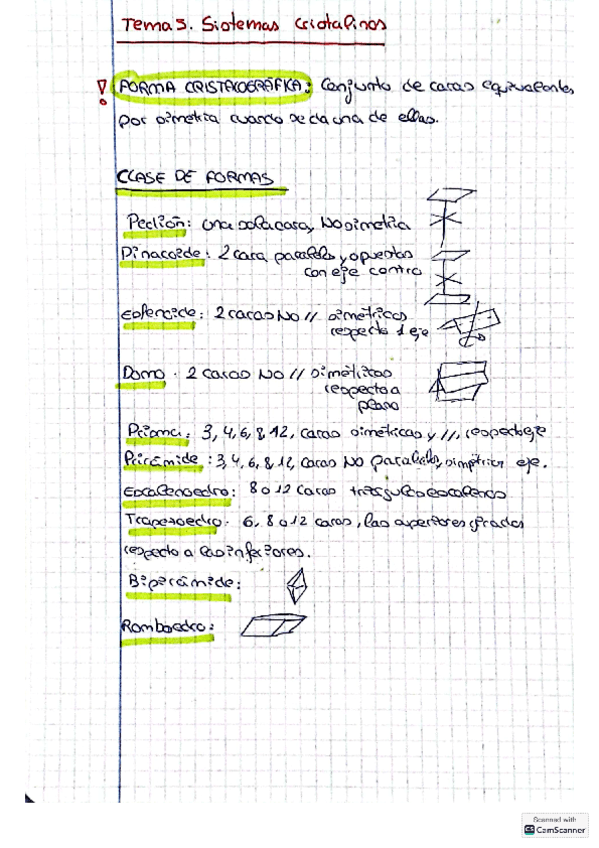 Tema 5. Sistemas Cristalinos
! FORMA CRISTALOGRÁFICA: Conjunto de caras equivalentes
por simetria cuando se da una de ellas.
CLASE DE FORMAS
Pedión: una sola cara, No simetria
Pinacoide: 2 cara paralelas y opuestas
con eje centro
Esfenoide: 2 caras No // simétricas
respecto 1 eje
Domo: 2 caras No // simétricas
respecto a
plano
Prisma: 3, 4, 6, 8, 12, caras simétricas y //, respecto eje
Pirámide: 3, 4, 6, 8, 12, caras No paralelas, simétrica eje.
Escalenoedro: 8 o 12 caras triángulos escalenos
Trapezoedro: 6, 8 o 12 caras, las superiores giradas
respecto a las inferiores.
Bipirámide:
Romboedro:
Scanned with
CS CamScanner